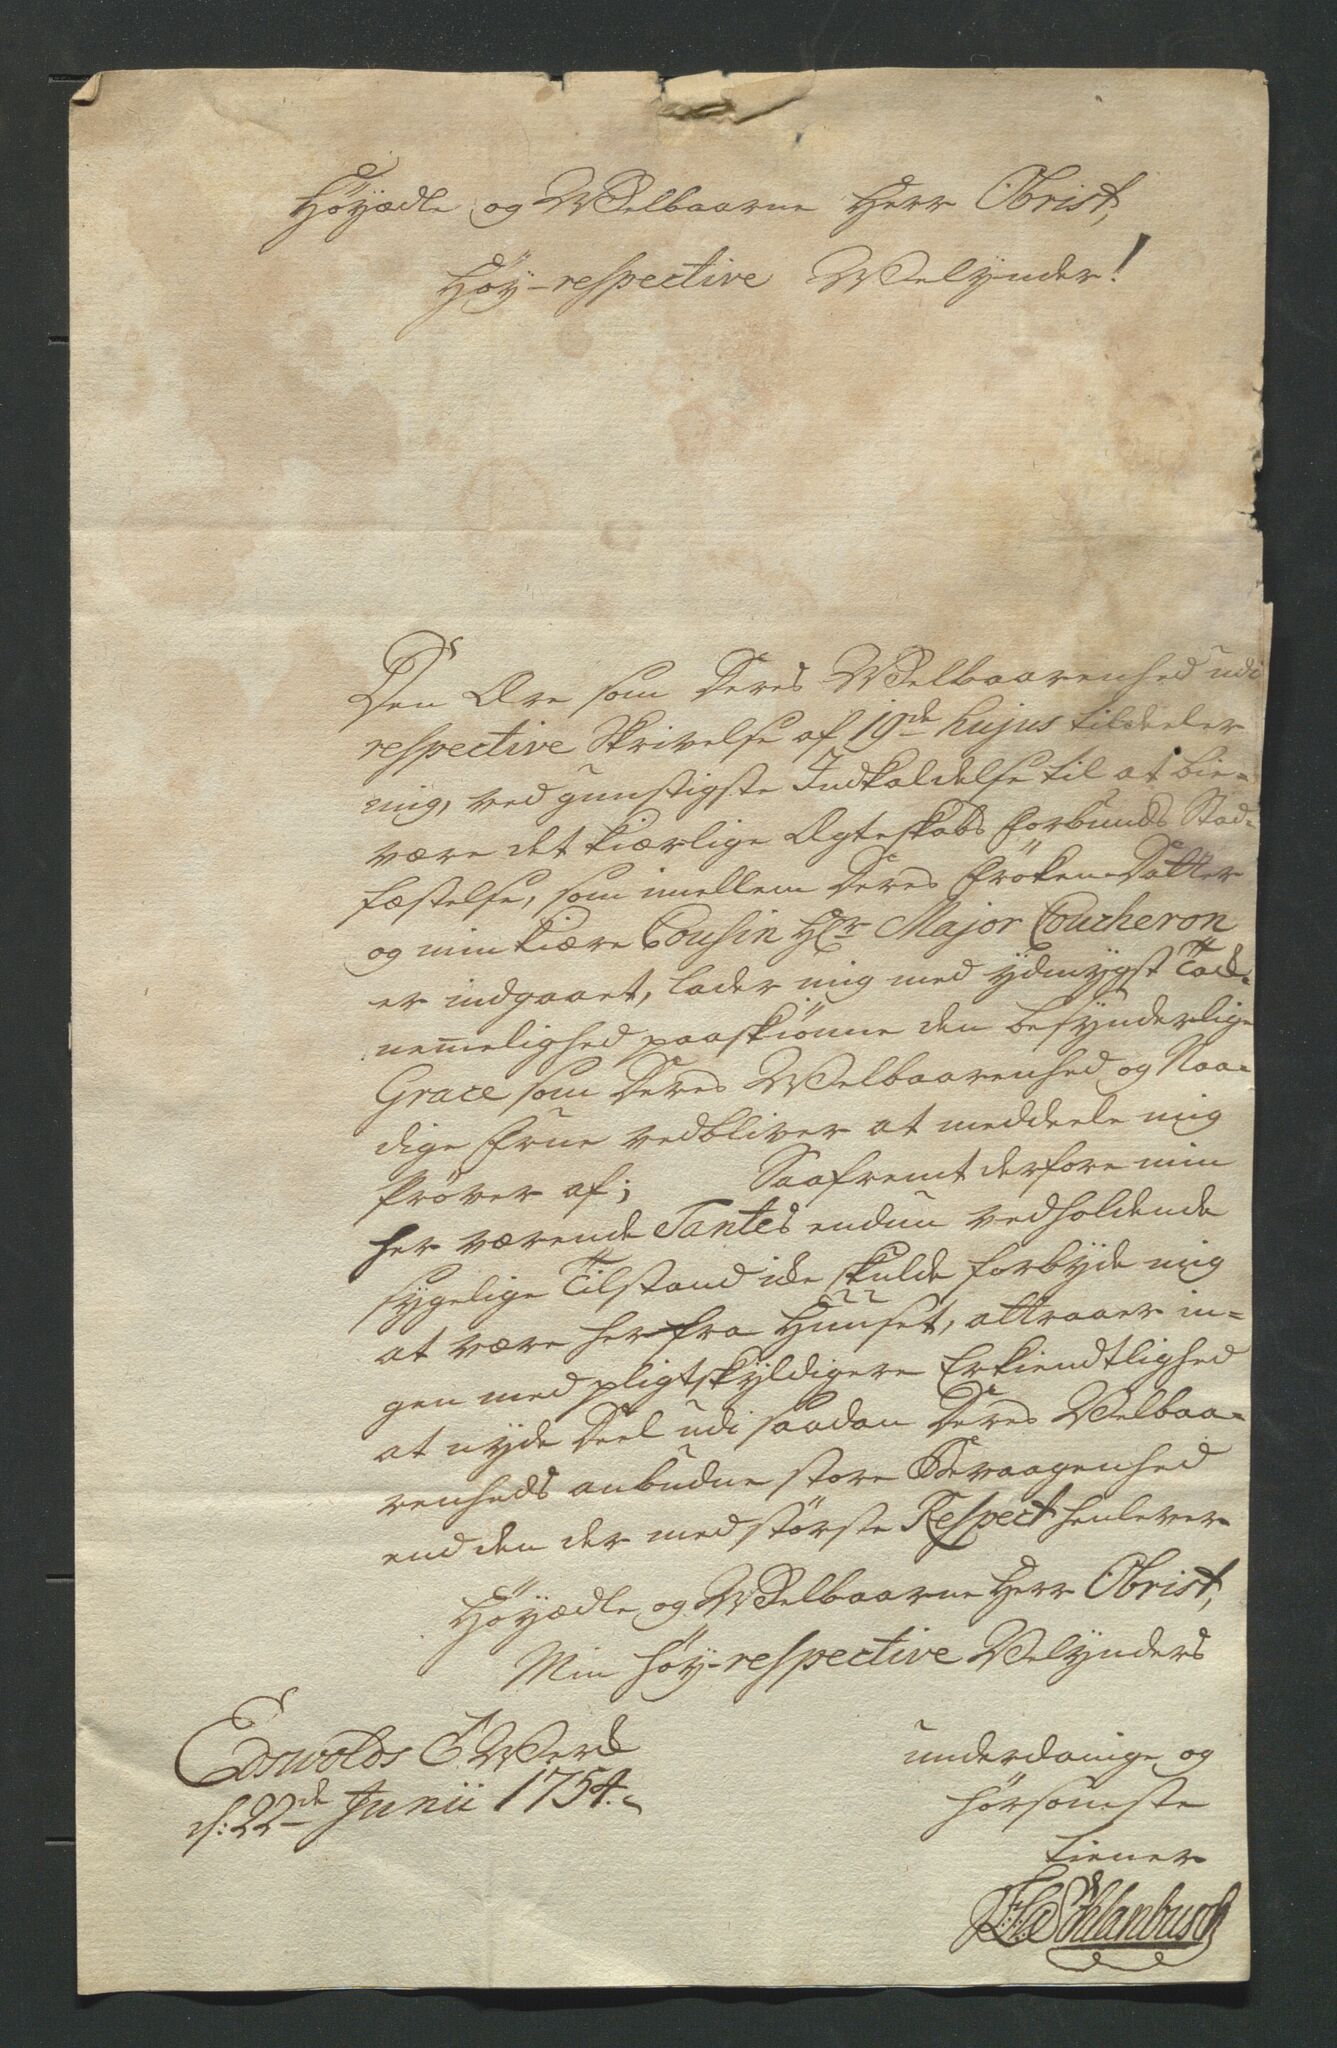 Høyædle og Welbaarne Herr Obrist,
Høy-respective Welynder!
Den Ære som Deres Welbaarenhed udi
respective Skrivelse af 19de hujus tildeeler
mig, ved gunstigste Indkaldelse til at bie-
være det kiærlige Ægteskabs Forbunds Stad-
fæstelse, som imellem Deres Frøken Datter
og min kiære Cousin Hr Major Coucheron
er indgaaet, lader mig med ydmygst Tack-
nemelighed paaskiønne den besynderlige
Grace som Deres Welbaarenhed og Naa-
dige Frue vedbliver at meddeele mig
Prøver af; Saafremt derfore min
her værende Tantes endnu vedholdende
sygelige Tilstand icke skulde forbyde mig
at være her fra Huuset, attraaer in-
gen med pligtskyldigere Erkiendtlighed
at nyde Deel udi saadan Deres Velbaa-
renheds anbudne store Bevaagenhed
end den der med største Respect henlever
Høyædle og Welbaarne Herr Obrist,
Min høy-respective Velynders
Edswolds J: Werck
d: 22de Junii 1754.
underdanige og
hørsomste
tiener
Schlanbusch